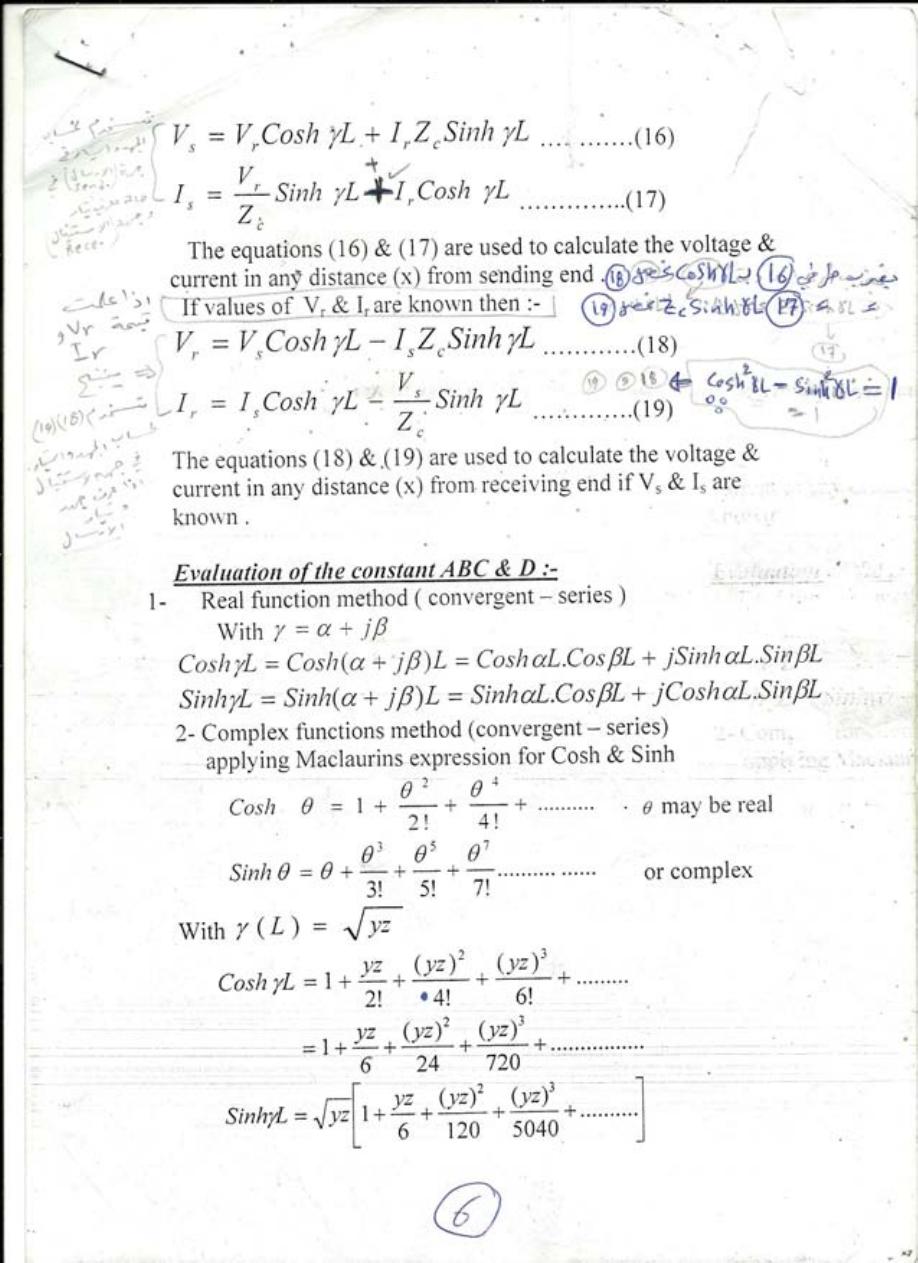 V_s = V_r Cosh γL + I_r Z_c Sinh γL ...........(16)
I_s = V_r/Z_c Sinh γL + I_r Cosh γL ..............(17)
The equations (16) & (17) are used to calculate the voltage &
current in any distance (x) from sending end .
If values of V_r & I_r are known then :-
V_r = V_s Cosh γL − I_s Z_c Sinh γL ............(18)
I_r = I_s Cosh γL − V_s/Z_c Sinh γL .............(19)
The equations (18) & (19) are used to calculate the voltage &
current in any distance (x) from receiving end if V_s & I_s are
known .
اذا علمت
قيمة Vr و
Ir
(18) (19)
(16) Cosh γL (18)
(17) Z_c Sinh γL (19)
(17)
(19) و (18) ⇐ Cosh² γL − Sinh² γL = 1
= 1
Evaluation of the constant ABC & D :-
1- Real function method ( convergent – series )
With γ = α + jβ
Cosh γL = Cosh(α + jβ)L = Cosh αL.Cos βL + jSinh αL.Sin βL
Sinh γL = Sinh(α + jβ)L = Sinh αL.Cos βL + jCosh αL.Sin βL
2- Complex functions method (convergent – series)
applying Maclaurins expression for Cosh & Sinh
Cosh θ = 1 + θ²/2! + θ⁴/4! + .......... θ may be real
Sinh θ = θ + θ³/3! + θ⁵/5! + θ⁷/7! ................ or complex
With γ (L) = √yz
Cosh γL = 1 + yz/2! + (yz)²/4! + (yz)³/6! + .........
= 1 + yz/6 + (yz)²/24 + (yz)³/720 + ................
Sinh γL = √yz [1 + yz/6 + (yz)²/120 + (yz)³/5040 + ..........]
6